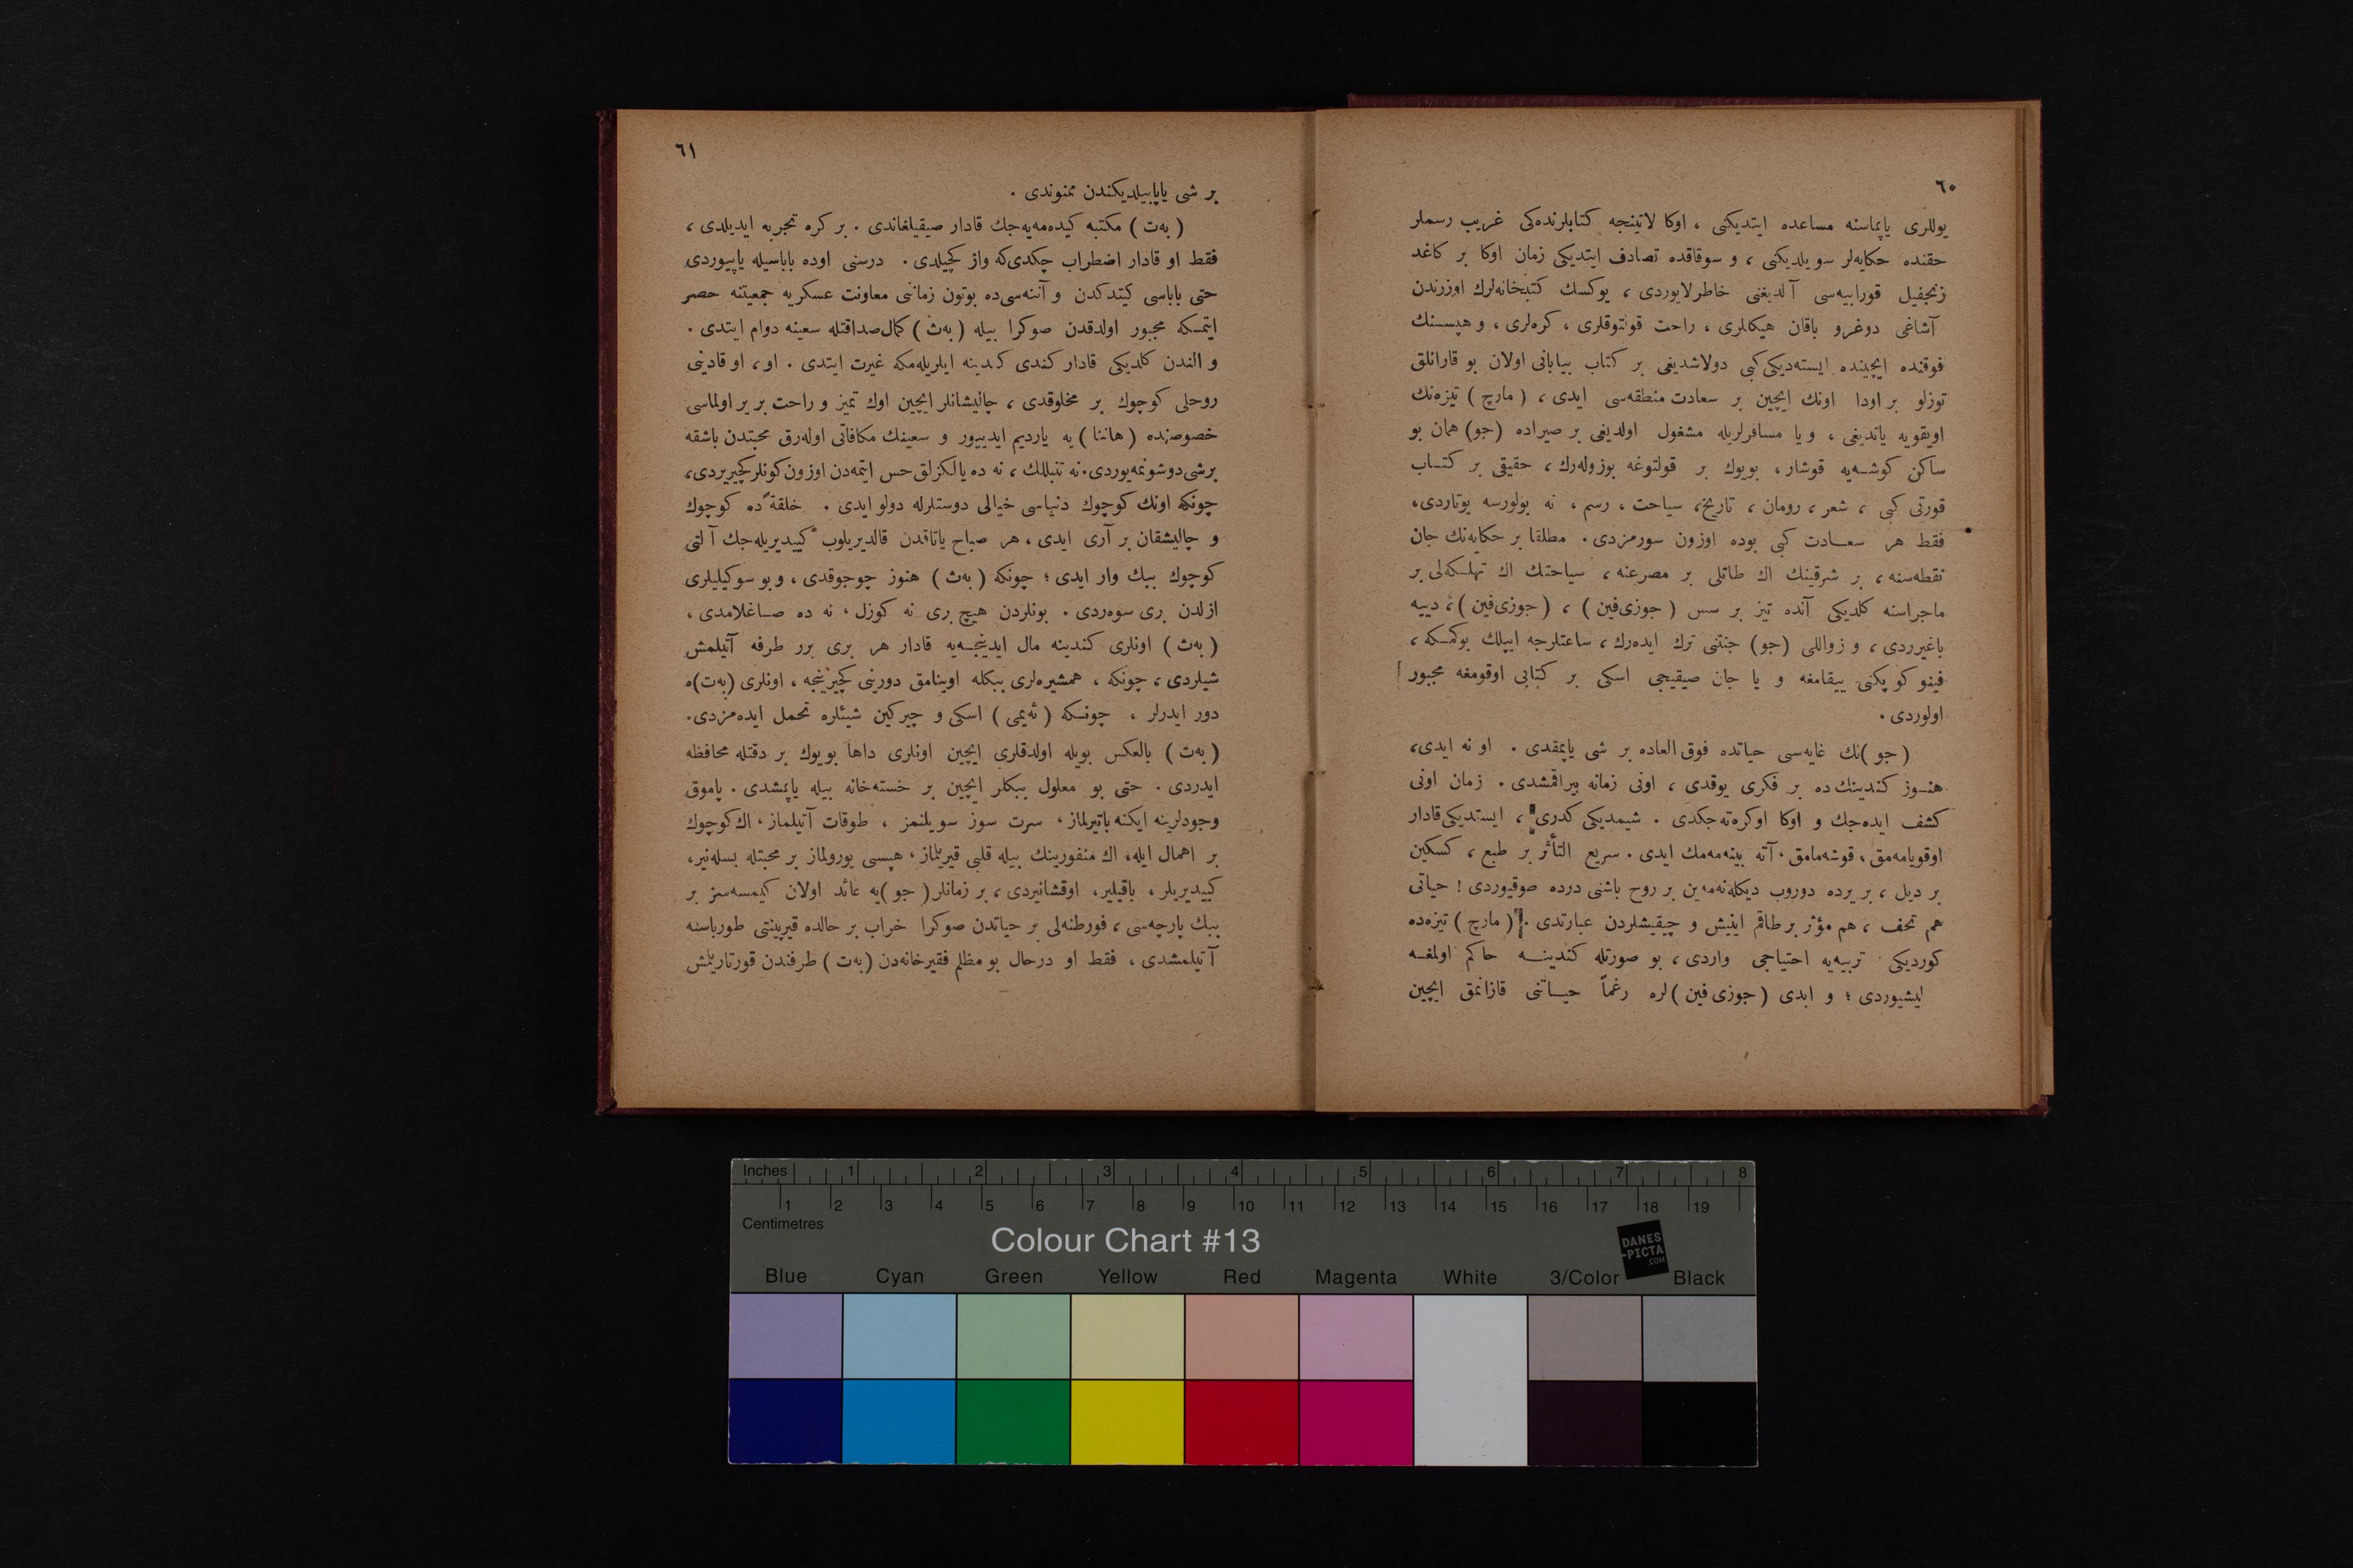 ٦٠
يوللری ياپماسنه مساعده ايتديكنی ، اوكا لاتينجه كتابلرنده‌كی غريب رسملر
حقنده حكايه‌لر سويلديكنی ، و سوقاقده تصادف ايتديكی زمان اوكا بر كاغد
زنجفيل قورابيه‌سی آلديغنی خاطرلايوردی ، يوكسك كتبخانه‌لرك اوزرندن
آشاغی دوغرو باقان هيكللری ، راحت قولتوقلری ، كره‌لری ، و هپسنك
فوقنده ايچينده ايسته‌ديكی كبی دولاشديغی بر كتاب بيابانی اولان بو قارانلق
توزلو بر اودا اونك ايچين بر سعادت منطقه‌سی ايدی ، (مارچ) تيزه‌نك
اويقويه ياتديغی ، ويا مسافرلريله مشغول اولديغی بر صيراده (جو) همان بو
ساكن كوشه‌يه قوشار ، بويوك بر قولتوغه بوزوله‌رك ، حقيقی بر كتاب
قورتی كبی ، شعر ، رومان ، تاريخ ، سياحت ، رسم ، نه بولورسه يوتاردی ،
فقط هر سعادت كبی بوده اوزون سورمزدی . مطلقا بر حكايه‌نك جان
نقطه‌سنه ، بر شرقينك اك طاتلی بر مصرعنه ، سياحتك اك تهلكه‌لی بر
ماجراسنه كلديكی آنده تيز بر سس (جوزی‌فين) ، (جوزی‌فين) ، دييه
باغيرردی ، و زواللی (جو) جنتنی ترك ايده‌رك ، ساعتلرجه ايپلك بوكمكه ،
فينو كوپكنی ييقامغه و يا جان صيقيجی اسكی بر كتابی اوقومغه مجبور
اولوردی .
(جو)نك غايه‌سی حياتده فوق‌العاده بر شی ياپمقدی . او نه ايدی ،
هنوز كندينك‌ده بر فكری يوقدی ، اونی زمانه بيراقمشدی . زمان اونی
كشف ايده‌جك و اوكا اوكره‌ته‌جكدی . شيمديكی كدری ، ايستديكی قادار
اوقويامه‌مق ، قوشه‌مامق ، آته بينه‌مه‌مك ايدی . سريع التأثر بر طبع ، كسكين
بر ديل ، بر يرده دوروب ديكله‌نه‌مه‌ين بر روح باشنی درده صوقيوردی ! حياتی
هم تحف ، هم مؤثر بر طاقم اينيش و چيقيشلردن عبارتدی . (مارچ) تيزه‌ده
كورديكی تربيه‌يه احتياجی واردی ، بو صورتله كندينه حاكم اولمغه
ليشيوردی ؛ و ابدی (جوزی فين)لره رغماً حياتنی قازانمق ايچين
٦١
بر شی ياپابيلديكندن ممنوندی .
(به‌ت) مكتبه كيده‌مه‌يه‌جك قادار صيقيلغاندی . بر كره تجربه ايديلدی ،
فقط او قادار اضطراب چكدی‌كه واز كچيلدی . درسنی اوده باباسيله ياپيوردی
حتی باباسی كيتدكدن و آننه‌سی‌ده بوتون زماننی معاونت عسكريه جمعيتنه حصر
ايتمكه مجبور اولدقدن صوكرا بيله (به‌ث) كمال صداقتله سعينه دوام ايتدی .
و الندن كلديكی قادار كندی كندينه ايلريله‌مكه غيرت ايتدی . او ، او قادينی
روحلی كوچوك بر مخلوقدی ، چاليشانلر ايچين اوك تميز و راحت بر ير اولماسی
خصوصنده (هاننا) يه يارديم ايدييور و سعينك مكافاتی اوله‌رق محبتدن باشقه
برشی دوشونمه‌يوردی . نه تنبللك ، نه ده يالكزلق حس ايتمه‌دن اوزون كونلر كچيريردی ،
چونكه اونك كوچوك دنياسی خيالی دوستلرله دولو ايدی . خلقةً ده كوچوك
و چاليشقان بر آری ايدی ، هر صباح ياتاقدن قالديريلوب كييديريله‌جك آلتی
كوچوك ببك وار ايدی ؛ چونكه (به‌ث) هنوز چوجوقدی ، و بو سوكيليلری
ازلدن بری سوه‌ردی . بونلردن هيچ بری نه كوزل ، نه ده صاغلامدی ،
(به‌ث) اونلری كندينه مال ايدينجه‌يه قادار هر بری برر طرفه آتيلمش
شيلردی ، چونكه ، همشيره‌لری ببكله اوينامق دورينی كچيرينجه ، اونلری (به‌ت)ه
دور ايدرلر ، چونكه (ئه‌يمی) اسكی و چيركين شيئلره تحمل ايده‌مزدی .
(به‌ت) بالعكس بويله اولدقلری ايچين اونلری داها بويوك بر دقتله محافظه
ايدردی . حتی بو معلول ببكلر ايچين بر خسته‌خانه بيله ياپمشدی . پاموق
وجودلرينه ايكنه باتيرلماز ، سرت سوز سويلنمز ، طوقات آتيلماز ، اك كوچوك
بر اهمال ايله ، اك منفورينك بيله قلبی قيريلماز ، هپسی يورولماز بر محبتله بسله‌نير ،
كييديريلر ، باقيلير ، اوقشانيردی ، بر زمانلر (جو)يه عائد اولان كيمسه‌سز بر
ببك پارچه‌سی ، فورطنه‌لی بر حياتدن صوكرا خراب بر حالده قيرپينتی طورباسنه
آتيلمشدی ، فقط او درحال بو مظلم فقيرخانه‌دن (به‌ت) طرفندن قورتاريلمش
Inches 1 2 3 4 5 6 7 8
1 2 3 4 5 6 7 8 9 10 11 12 13 14 15 16 17 18 19
Centimetres
Colour Chart #13
DANES
-PICTA
.COM
Blue Cyan Green Yellow Red Magenta White 3/Color Black